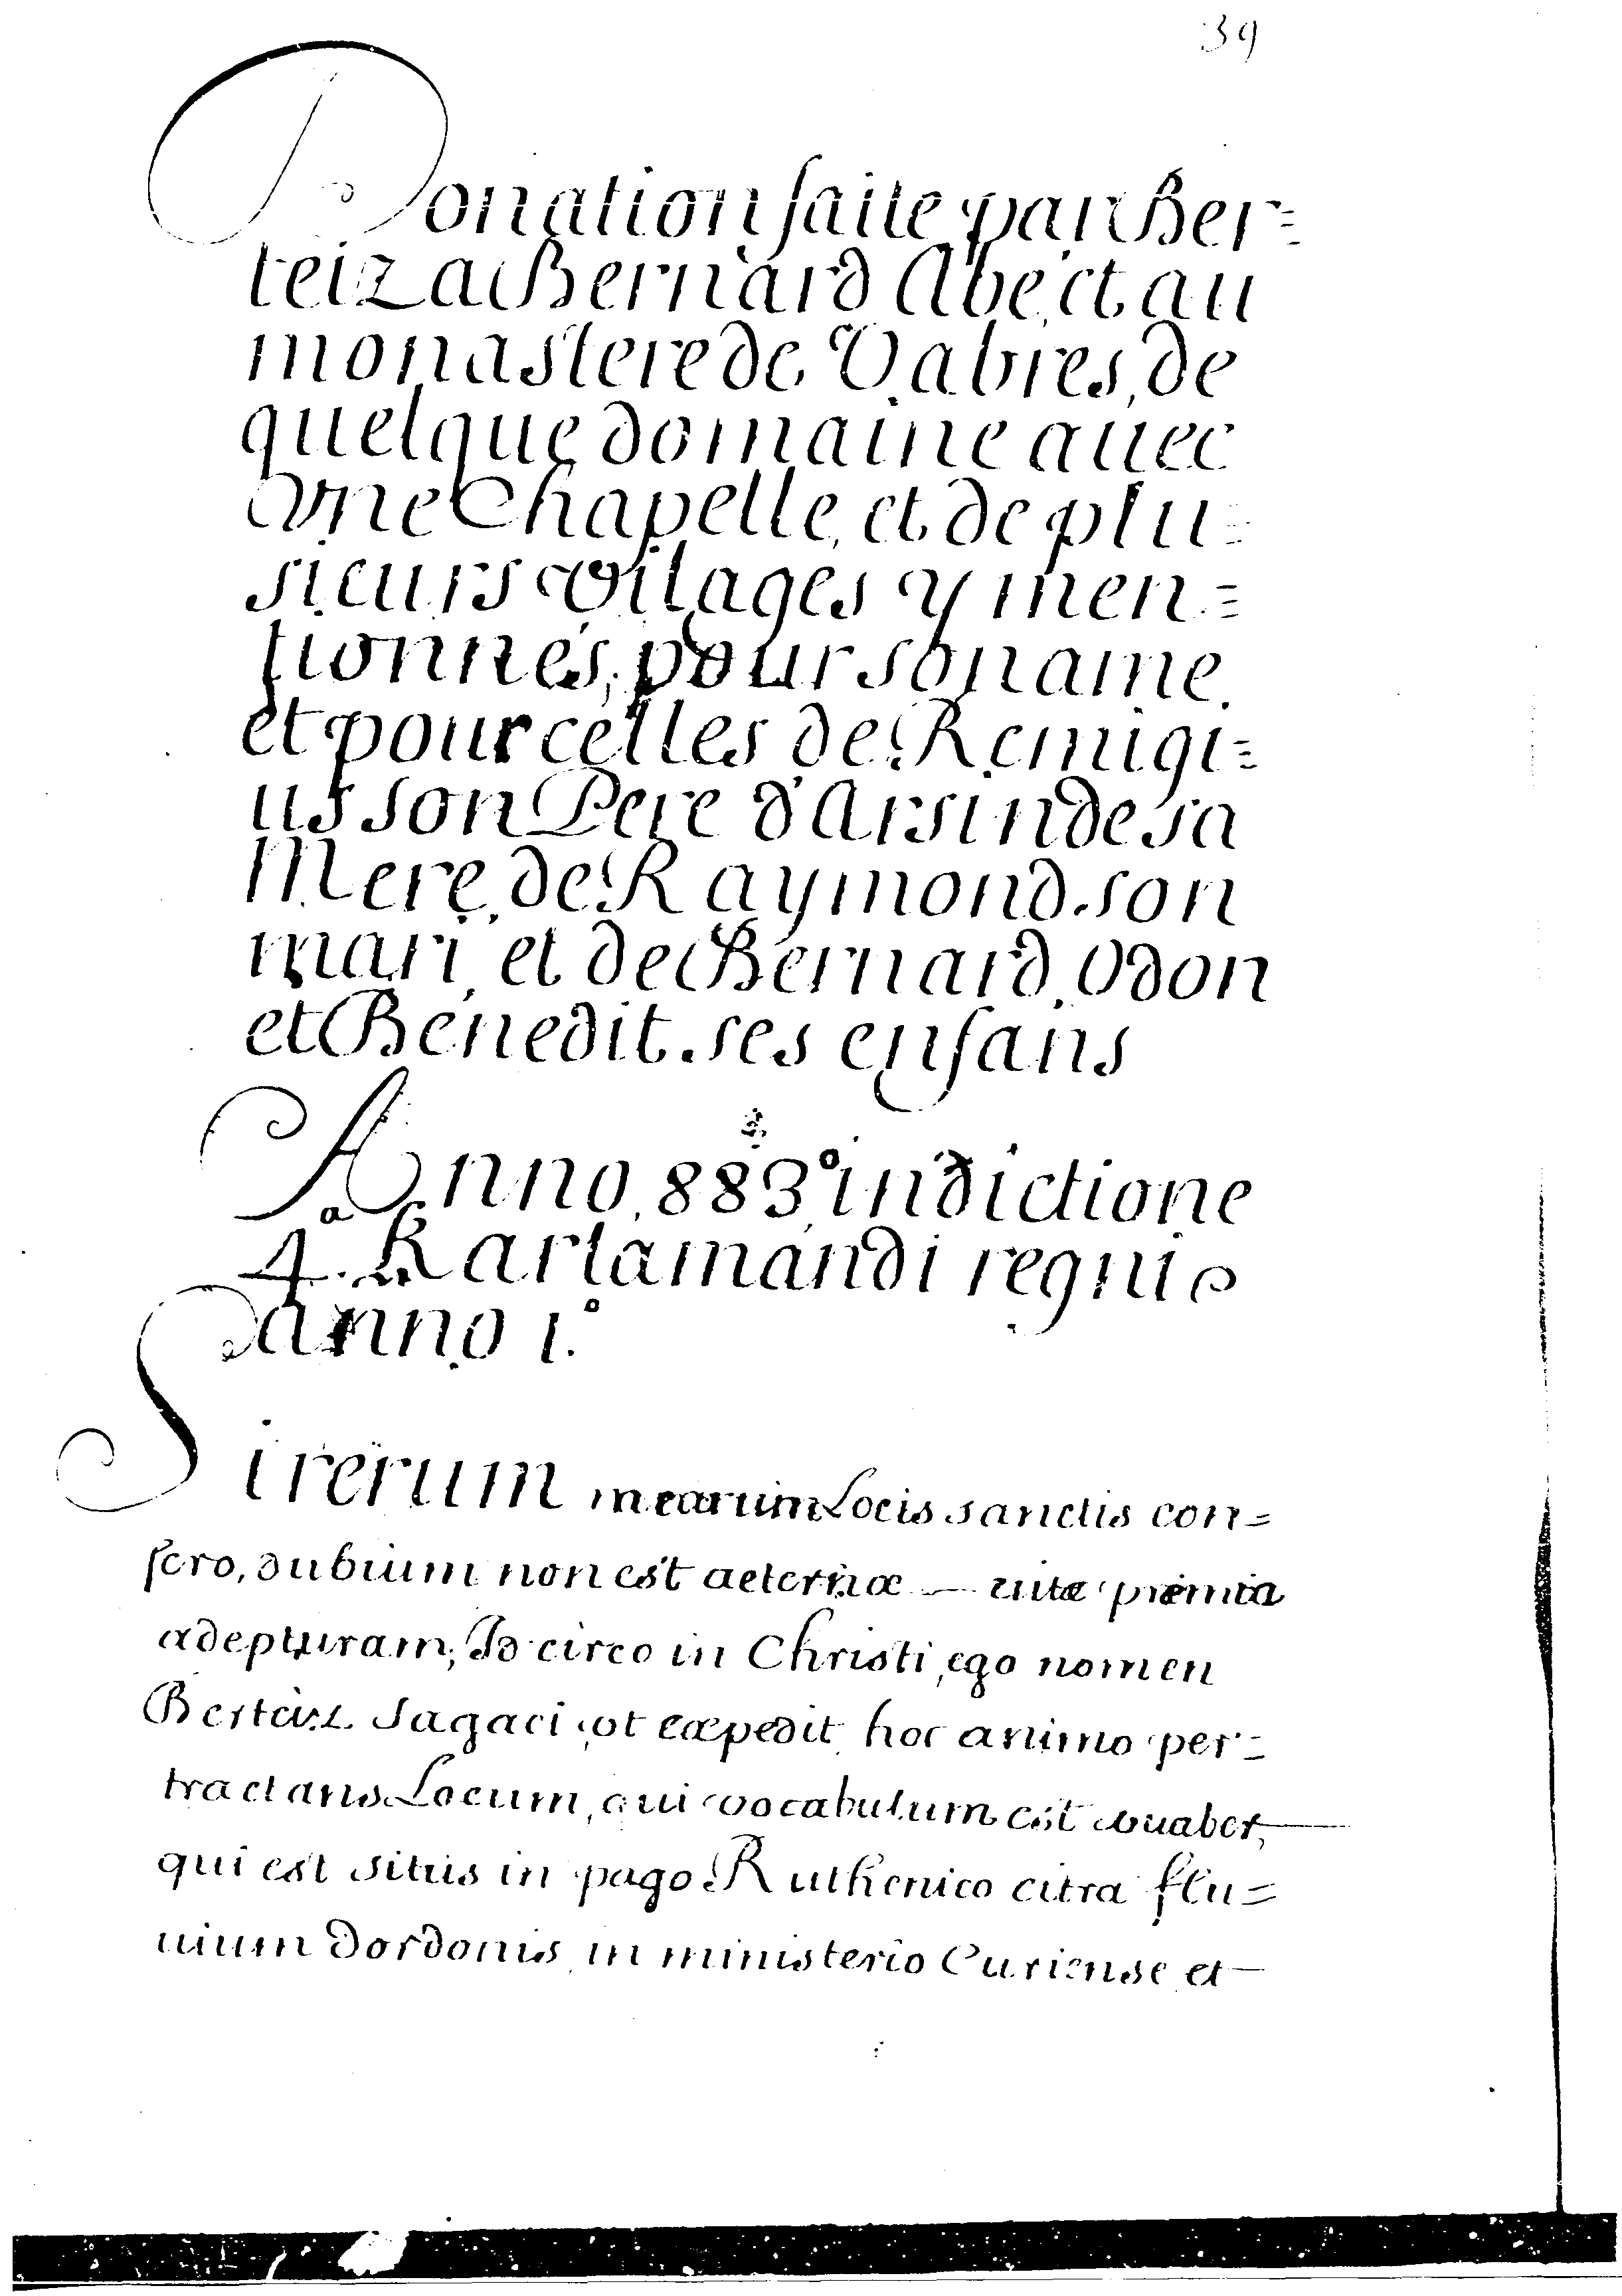 39
Donation faite par Ber=
teiz a Bernard Abé, et au
monastere de Vabres, de
quelque domaine auec
vne Chapelle, et de plu=
sieurs vilages y men=
tionnés, pour son ame
et pour celles de Remigi=
us son Pere d'Arsinde sa
Mere, de Raymond son
mari, et de Bernard, Odon
et Benedit ses enfans
Anno 883º indictione
4.ª Karlamandi regni
anno 1.º
Si rerum mearum Locis sanctis con=
fero, dubium non est aeternæ — uitæ premia
adepturam; Id circo in Christi, ego nomen
Berteiz sagaci, vt expedit hoc animo per=
tractans Locum, cui vocabulum est vuaber,
qui est situs in pago Ruthenico citra flu=
uium Dordonis, in ministerio Curiense et